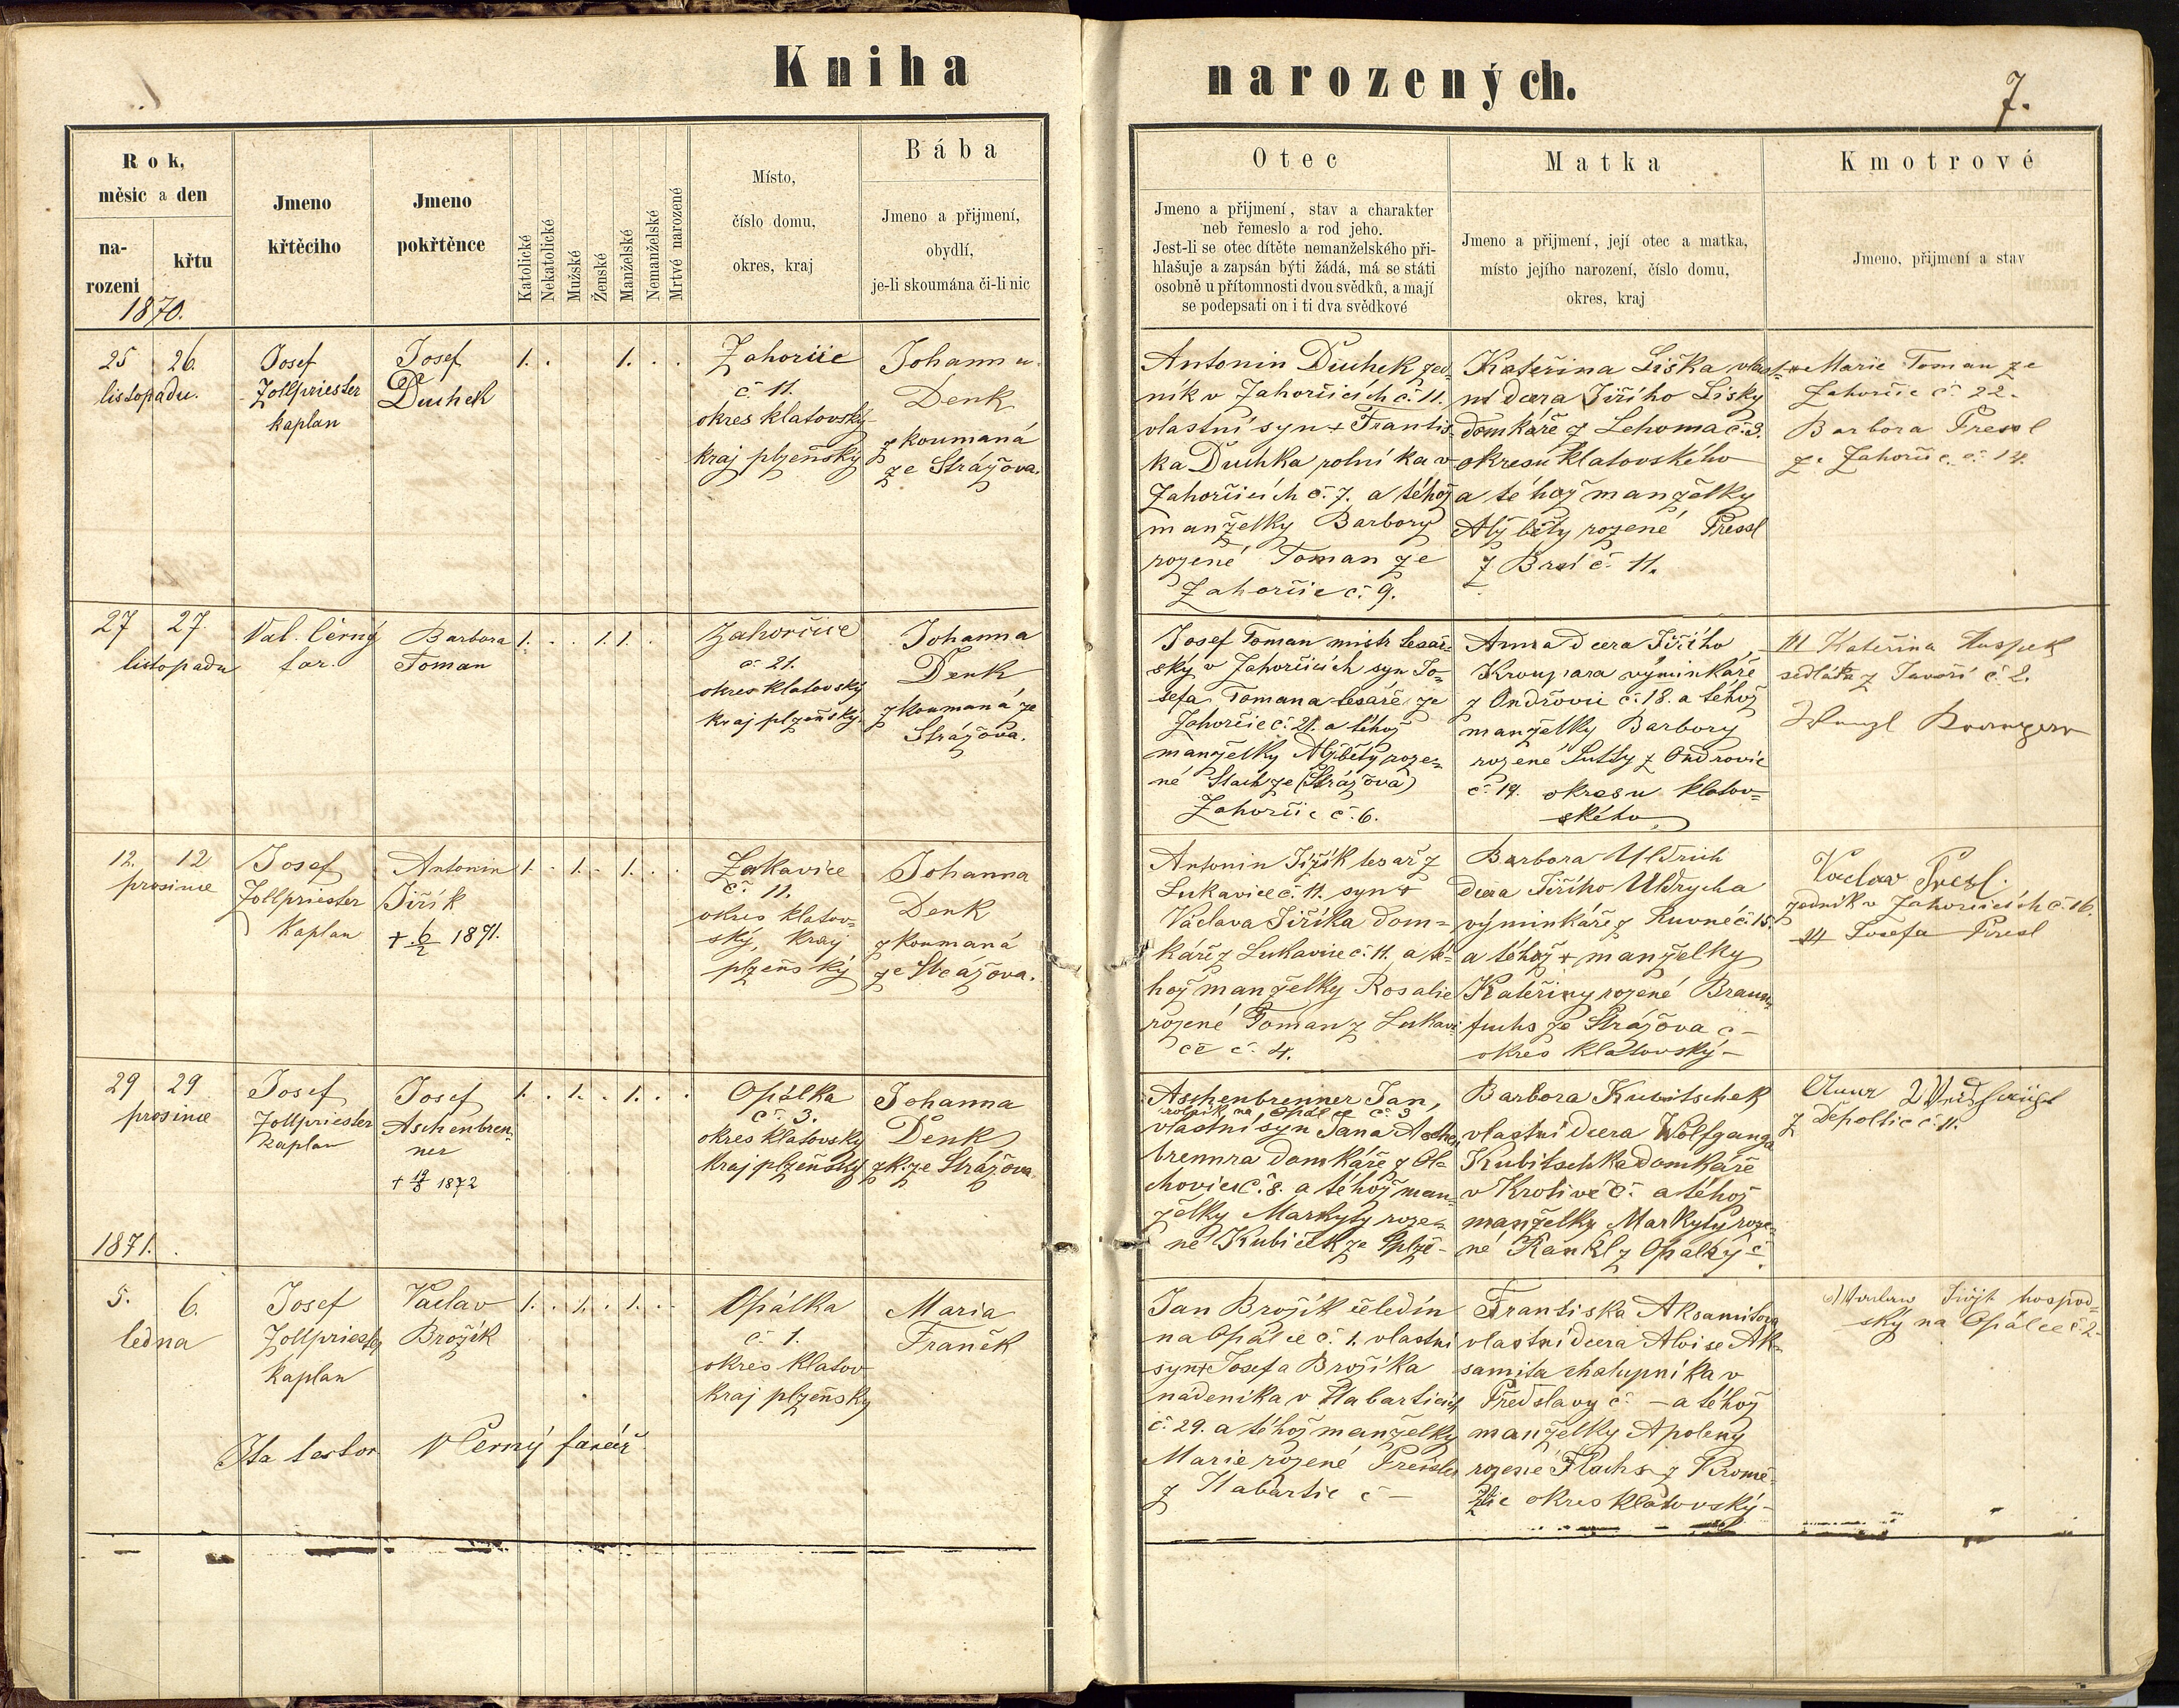 Kniha
narozených.
7.
Rok,
měsíc a den
na-
rození
křtu
1870.
Jmeno
křtěcího
Jmeno
pokřtěnce
Katolické
Nekatolické
Mužské
Ženské
Manželské
Nemanželské
Mrtvé narozené
Místo,
číslo domu,
okres, kraj
Bába
Jmeno a přijmení,
obydlí,
je-li skoumána či-li nic
Otec
Jmeno a přijmení, stav a charakter
neb řemeslo a rod jeho.
Jest-li se otec dítěte nemanželského při-
hlašuje a zapsán býti žádá, má se státi
osobně u přítomnosti dvou svědků, a mají
se podepsati on i ti dva svědkové
Matka
Jmeno a přijmení, její otec a matka,
místo jejího narození, číslo domu,
okres, kraj
Kmotrové
Jmeno, přijmení a stav
25 26.
listopadu.
Josef
Zollpriester
kaplan
Josef
Duchek
1. . 1. . .
Zahorčic
č. 11.
okres klatovský
kraj plzeňský
Johanna
Denk
zkoumaná
ze Strážova.
Antonin Duchek sed-
ník v Zahorčicích č. 11.
vlastní syn + Františ-
ka Duchka rolníka v
Zahorčicích č. 7. a téhož
manželky Barbory
rozené Toman ze
Zahorčic č. 9.
Kateřina Liška vlast-
ní dcera Jiřího Lišky
domkáře z Lehoma č. 3.
okresu klatovského
a téhož manželky
Alžběty rozené Pressl
z Brní č. 11.
Marie Toman ze
Zahorčic č. 22.
Barbora Pressl
ze Zahorčic č. 14.
27 27.
listopadu
Val. Černý
far.
Barbora
Toman
1. . . 1. 1. .
Zahorčice
č. 21.
okres klatovský
kraj plzeňský.
Johanna
Denk
zkoumaná ze
Strážova.
Josef Toman mistr tesař-
ský v Zahorčicích syn Jo-
sefa Tomana tesaře ze
Zahorčic č. 21. a téhož
manželky Alžběty roze-
né Stach ze (Strážova)
Zahorčic č. 6.
Anna dcera Jiřího
Kroupara výminkáře
z Ondřovic č. 18. a téhož
manželky Barbory
rozené z Ondrovic
č. 19. okresu klatov-
ského
Kateřina
sedláka z Javoří č. 2.
12. 12
prosince
Josef
Zollpriester
Kaplan
Antonin
Jiřík
+ 6/2 1871.
1. . 1. . 1. . .
Lukavice
č. 11.
okres klatov-
ský, kraj
plzeňský
Johanna
Denk
zkoumaná
ze Strážova.
Antonin Jiřík tesař z
Lukavice č. 11. syn +
Václava Jiříka dom-
káře z Lukavice č. 11. a té-
hož manželky Rosalie
rozené Toman z Lukavi-
ce č. 4.
Barbora Uldrich
dcera Jiřího Uldrycha
výminkáře z Kuvné č. 15.
a téhož + manželky
Kateřiny rozené Braun-
fuchs ze Strážova č -
okres klatovský -
Vaclav Presl.
sedník v Zahorčicích č. 16.
Josefa Presl
29 29
prosince
Josef
Zollpriester
kaplan
Josef
Aschenbren-
ner
+ 19/3 1872
1. . 1. . 1. . .
Opálka
č. 3.
okres klatovský
Kraj plzeňský
Johanna
Denk
zk. ze Strážova
Aschenbrenner Jan,
rolník na Opálce č. 3
vlastní syn Jana Aschen-
brennra domkáře z Ol-
chovic č. 8. a téhož man-
želky Markyty roze-
né Kubiček ze
Barbora Kubitschek
vlastní dcera Wolfganga
Kubitschka domkáře
v Krotivě č. a téhož
manželky Markyty roze-
né Rankl z Opálky č.
Anna
z Depoltic č. 11.
1871.
5. 6.
ledna
Josef
Zollpriester
kaplan
Vaclav
Brožík
1. . 1. . 1. . .
Opálka
č. 1.
okres klatov
kraj plzeňský
Maria
Franěk
Jan Brožík čeledín
na Opálce č. 1. vlastní
syn + Josefa Brožíka
nadeníka v Habarticích
č. 29. a téhož manželky
Marie rozené Preisler
z Habartic č -
Frantiska Aksamitova
vlastní dcera Aloise Ak-
samita chalupníka v
Předslavy č. - a téhož
manželky Apoleny
rozené Flachs z Kromě-
ždic okres klatovský -
hospod-
ský na Opálce č. 2.
Ita testor V Černý farář